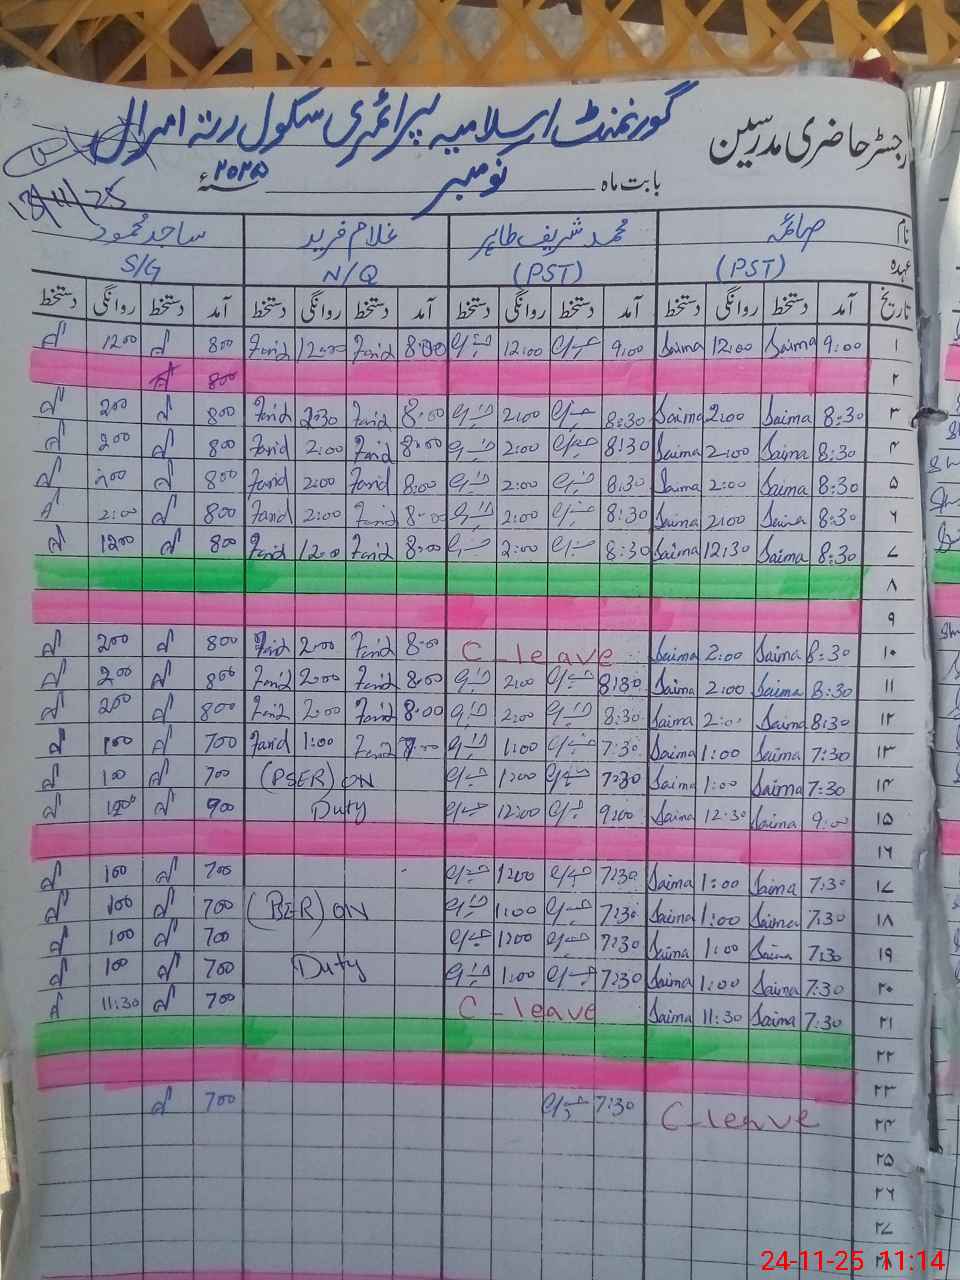 گورنمنٹ اسلامیہ پرائمری سکول رتہ امرال
رجسٹر حاضری مدرسین
بابت ماہ نومبر ۲۰۲۵ سنۂ
13/11/25
نام صائمہ محمد شریف طاہر غلام فرید ساجد محمود
عہدہ (PST) (PST) N/Q S/G
تاریخ آمد دستخط روانگی دستخط آمد دستخط روانگی دستخط آمد دستخط روانگی دستخط آمد دستخط روانگی دستخط
۱ 9:00 Saima 12:00 Saima 9:00 12:00 8:00 Farid 12:00 Farid 800 1200
۲ 800
۳ 8:30 Saima 2:00 Saima 8:30 2:00 8:00 Farid 2:30 Farid 800 200
۴ 8:30 Saima 2:00 Saima 8:30 2:00 8:00 Farid 2:00 Farid 800 200
۵ 8:30 Saima 2:00 Saima 8:30 2:00 8:00 Farid 2:00 Farid 800 200
۶ 8:30 Saima 2:00 Saima 8:30 2:00 8:00 Farid 2:00 Farid 800 2:00
۷ 8:30 Saima 12:30 Saima 8:30 2:00 8:00 Farid 12:00 Farid 800 1200
۸
۹
۱۰ 8:30 Saima 2:00 Saima C_leave 8:00 Farid 2:00 Farid 800 200
۱۱ 8:30 Saima 2:00 Saima 8:30 2:00 8:00 Farid 2:00 Farid 800 200
۱۲ 8:30 Saima 2:00 Saima 8:30 2:00 8:00 Farid 2:00 Farid 800 200
۱۳ 7:30 Saima 1:00 Saima 7:30 1:00 7:00 Farid 1:00 Farid 700 100
۱۴ 7:30 Saima 1:00 Saima 7:30 (PSER) ON 700 100
۱۵ 9:00 Saima 12:30 Saima 9:00 12:00 Duty 900
۱۶
۱۷ 7:30 Saima 1:00 Saima 7:30 700 100
۱۸ 7:30 Saima 1:00 Saima 7:30 1:00 (PSER) ON 700 100
۱۹ 7:30 Saima 1:00 Saima 7:30 700 100
۲۰ 7:30 Saima 1:00 Saima 7:30 1:00 Duty 700 100
۲۱ 7:30 Saima 11:30 Saima C_leave 700 11:30
۲۲
۲۳
۲۴ C_leave 7:30 700
۲۵
۲۶
۲۷
۲۸
24-11-25 11:14